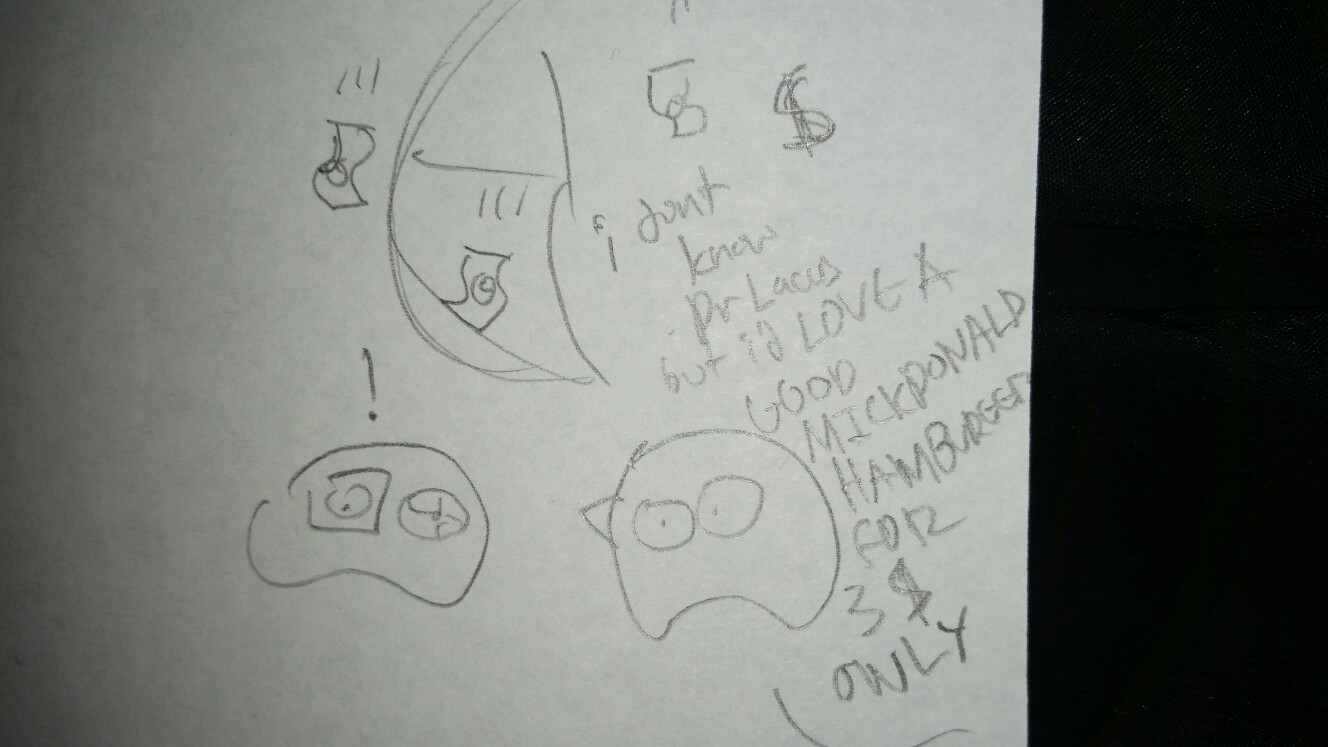 $
i dont
know
but i'd LOVE A
GOOD
MICKDONALD
HAMBURGER
FOR
3 $
ONLY
!